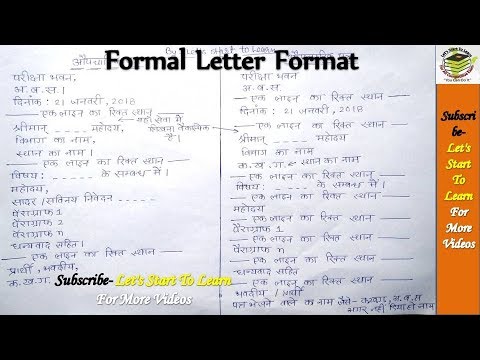 Formal Letter Format
By Let's Start to Learn
औपचा
परीक्षा भवन,
अ. व. स.।
दिनांक : 21 जनवरी, 2018
एक लाइन का रिक्त स्थान
श्रीमान् _ _ _ _ महोदय,
विभाग का नाम,
स्थान का नाम।
एक लाइन का रिक्त स्थान
विषय: _ _ _ _ _ के सम्बन्ध में।
महोदय,
सादर / सविनय निवेदन _ _ _ _ _
पैराग्राफ 1
पैराग्राफ 2
पैराग्राफ n
धन्यवाद सहित।
एक लाइन का रिक्त स्थान
प्रार्थी, भवदीय,
क. ख. ग.
परीक्षा भवन
अ. व. स.
एक लाइन का रिक्त स्थान
दिनांक : 21 जनवरी, 2018
एक लाइन का रिक्त स्थान
श्रीमान् _ _ _ _ महोदय
विभाग का नाम
क. ख. ग. ← स्थान का नाम
एक लाइन का रिक्त स्थान
विषय: _ _ _ _ के सम्बन्ध में।
एक लाइन का रिक्त स्थान
महोदय
एक लाइन का रिक्त स्थान
पैराग्राफ 1
एक लाइन का रिक्त स्थान
पैराग्राफ n
एक लाइन का रिक्त स्थान
धन्यवाद सहित
एक लाइन का रिक्त स्थान
भवदीय / प्रार्थी
पत्र भेजने वाले का नाम
अगर नहीं दिया हो नाम
Subscribe- Let's Start To Learn
For More Videos
Let's Start To Learn
"You Can Do It"
Subscri
be-
Let's
Start
To
Learn
For
More
Videos